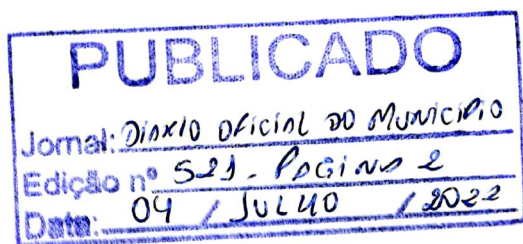 PUBLICADO
Jornal: DIARIO OFICIAL DO MUNICIPIO
Edição nº 521 - PAGINA 2
Data: 04 / JULHO / 2022